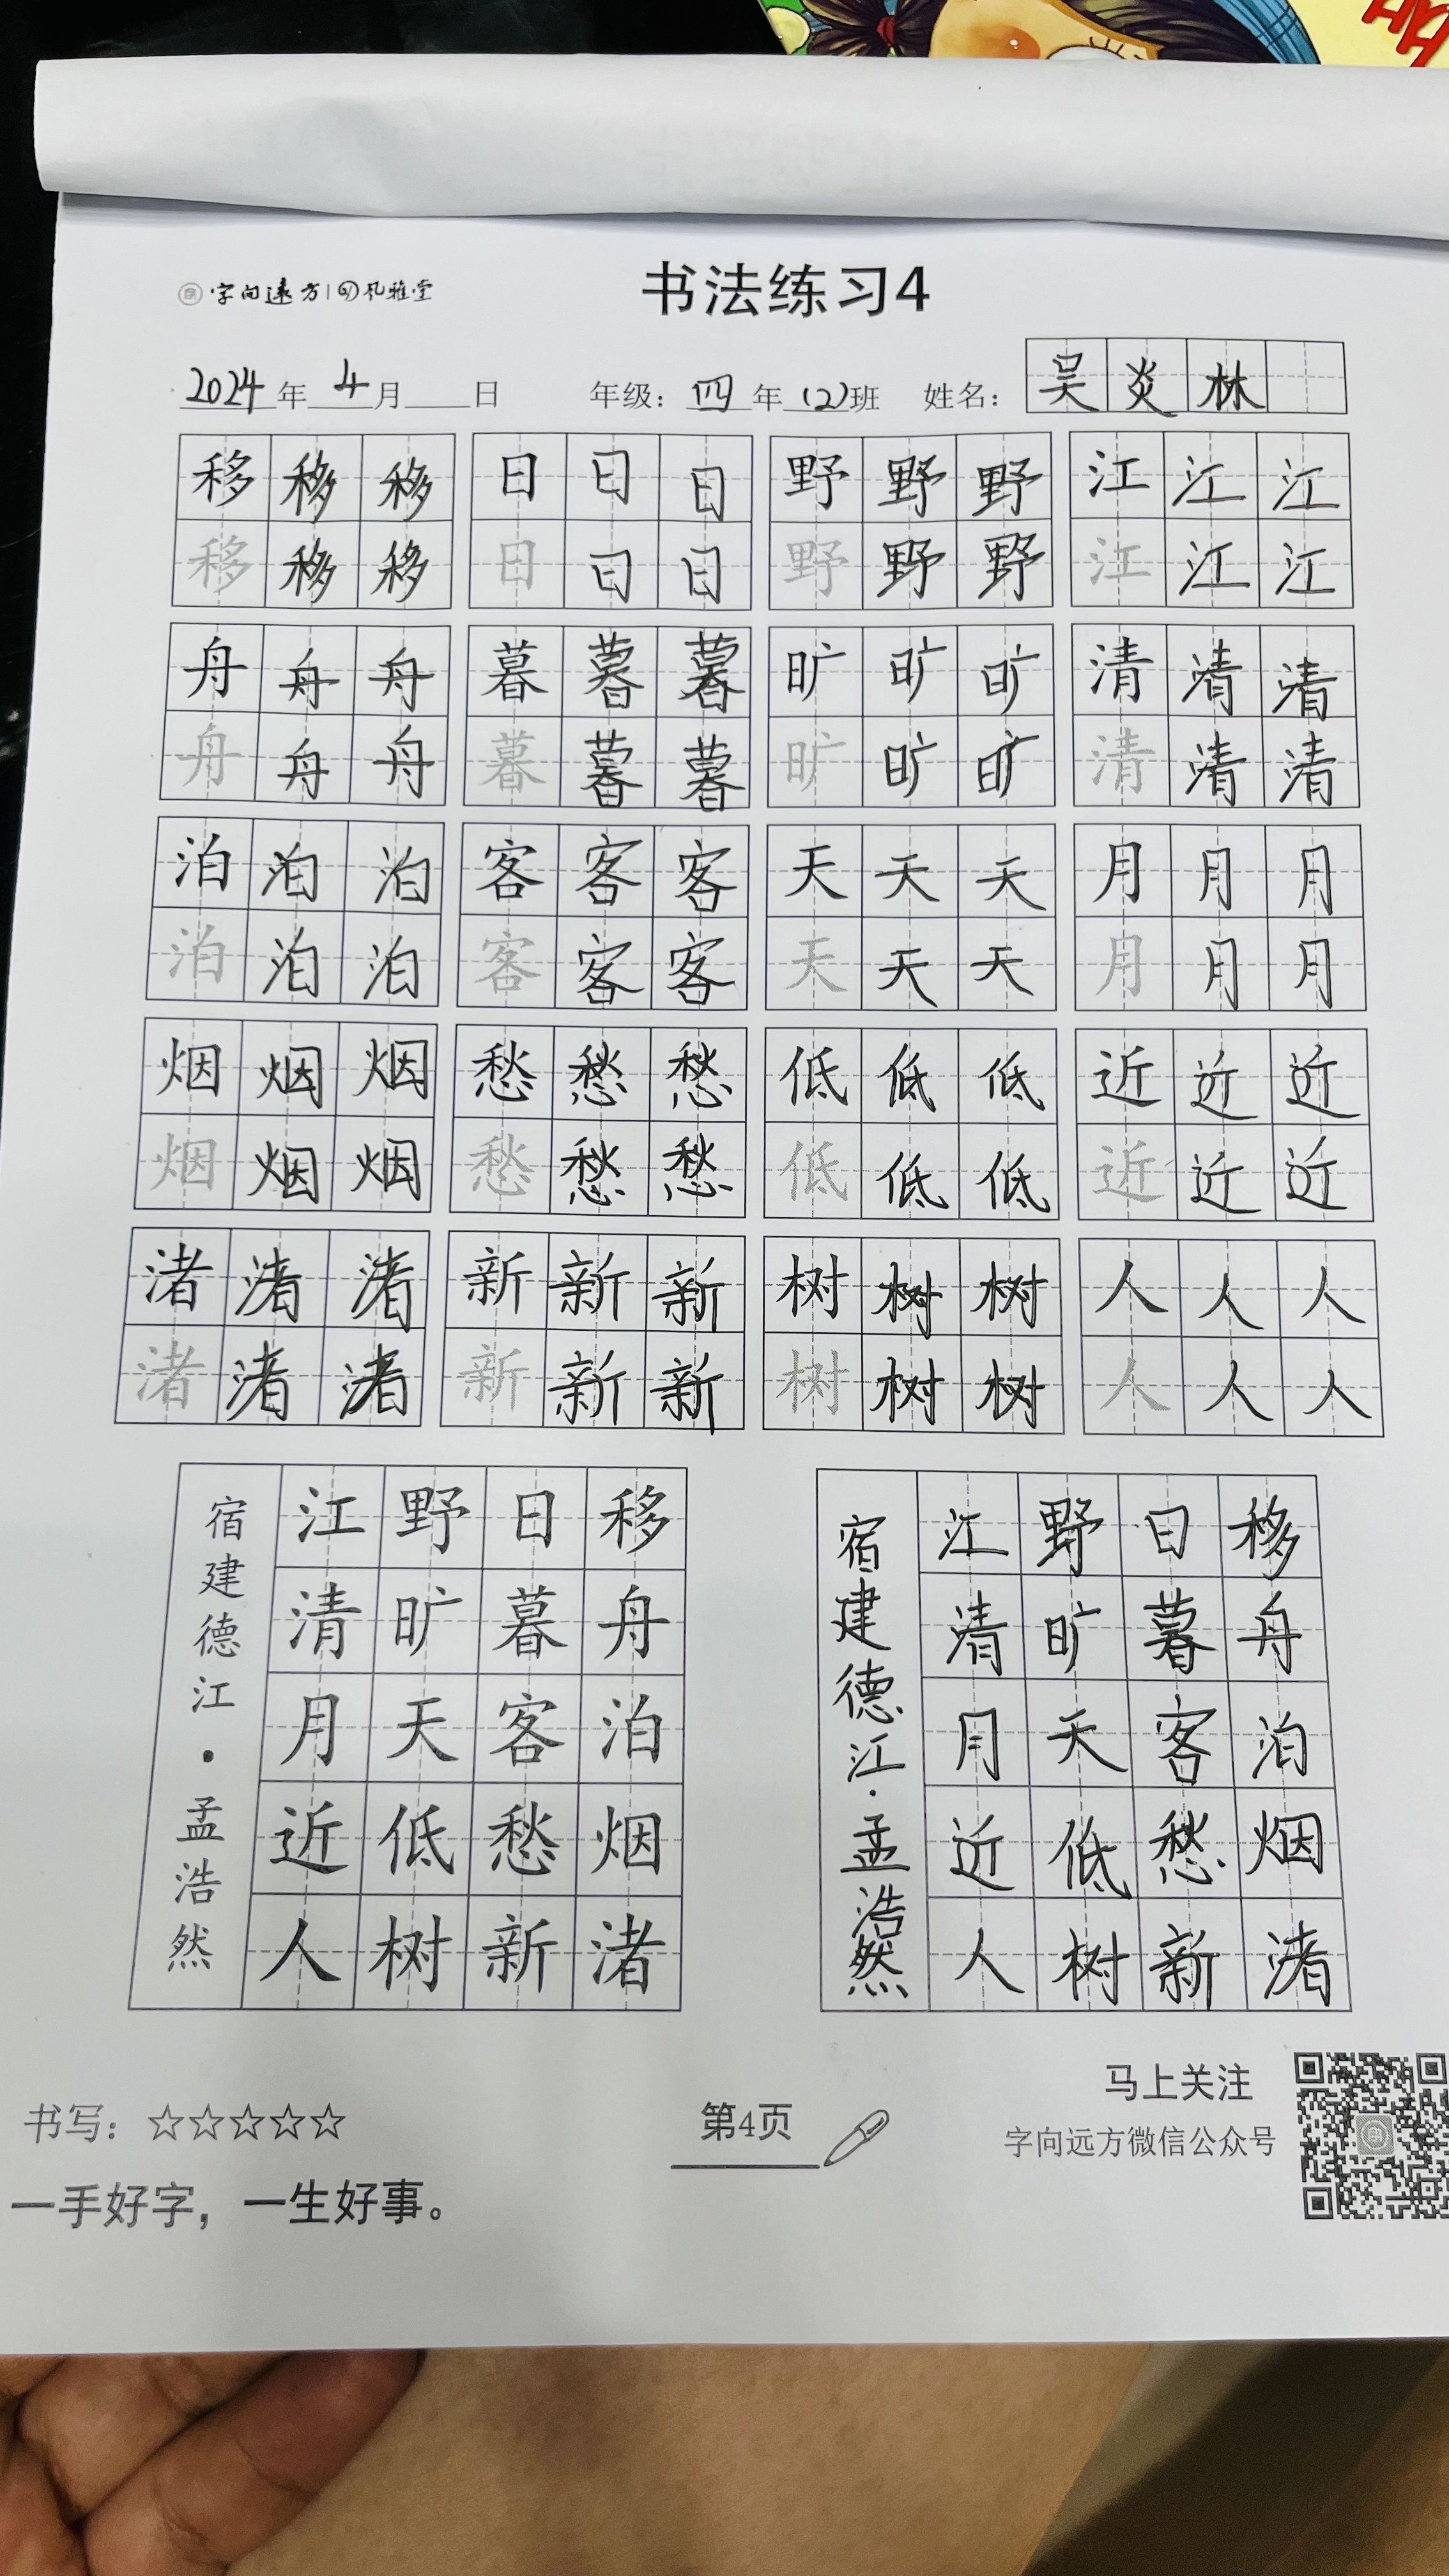 字向远方 礼雅堂
书法练习4
2024年 4月 日 年级：四年(2)班 姓名：吴炎林
移移移 日日日 野野野 江江江
移移移 日日日 野野野 江江江
舟舟舟 暮暮暮 旷旷旷 清清清
舟舟舟 暮暮暮 旷旷旷 清清清
泊泊泊 客客客 天天天 月月月
泊泊泊 客客客 天天天 月月月
烟烟烟 愁愁愁 低低低 近近近
烟烟烟 愁愁愁 低低低 近近近
渚渚渚 新新新 树树树 人人人
渚渚渚 新新新 树树树 人人人
移舟泊烟渚
日暮客愁新
野旷天低树
江清月近人
宿建德江·孟浩然
移舟泊烟渚
日暮客愁新
野旷天低树
江清月近人
宿建德江·孟浩然
书写：☆☆☆☆☆
一手好字，一生好事。
第4页
马上关注
字向远方微信公众号